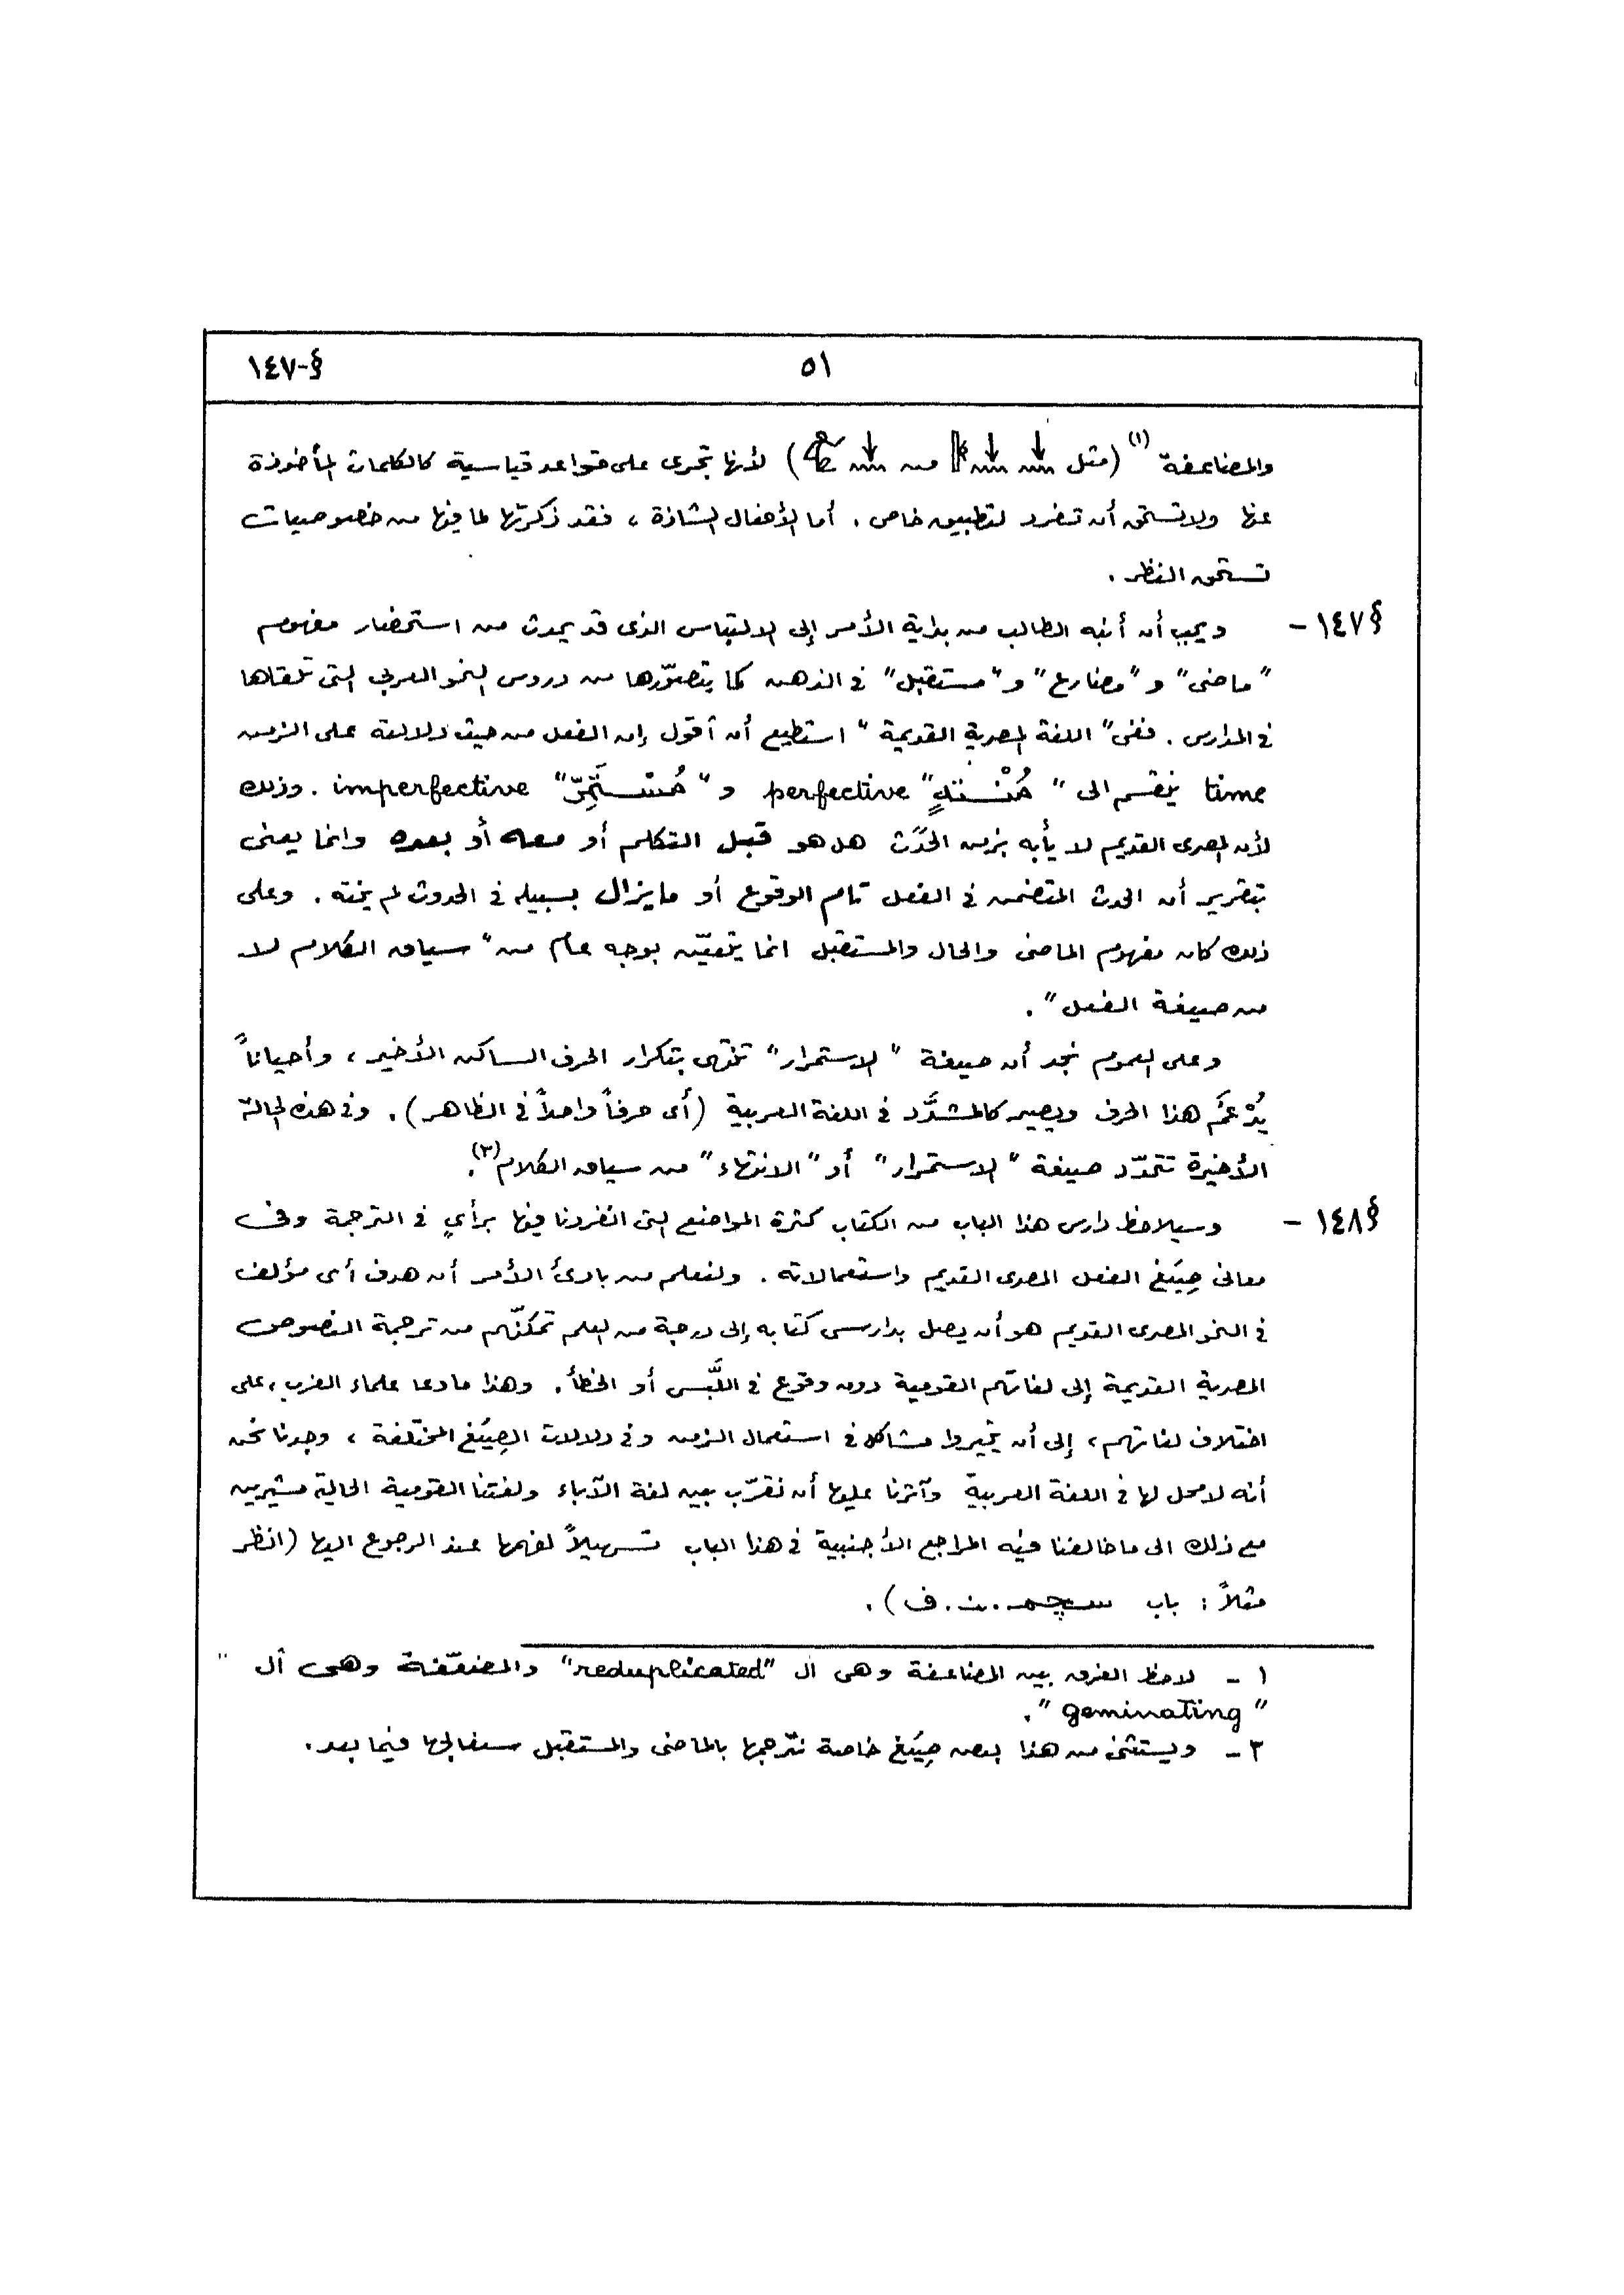 §-١٤٧
٥١
والمضاعفة (١) (مثل من) لأنها تجرى على قواعد قياسية كالكلمات المأخوذة
عنها ولا تستحق أن تفرد لتطبيق خاص. أما الأفعال الشاذة، فقد ذكرتها لما فيها من خصوصيات
تستحق النظر.
§١٤٧ - ويجب أن أنبه الطالب من بداية الأمر إلى الالتباس الذى قد يحدث من استحضار مفهوم
"ماضى" و "مضارع" و "مستقبل" فى الذهن كما يتصوّرها من دروس النحو العربى التى تلقاها
فى المدارس. ففى "اللغة المصرية القديمة" استطيع أن أقول إن الفعل من حيث دلالته على الزمن
time ينقسم الى "مُنْتَهٍ" perfective و "مُسْتَمِرّ" imperfective. وذلك
لأن المصرى القديم لا يأبه بزمن الحَدَث هل هو قبل التكلم أو معه أو بعده وانما يعنى
بتقرير أن الحدث المتضمن فى الفعل تام الوقوع أو مايزال بسبيله فى الحدوث لم ينته. وعلى
ذلك كان مفهوم الماضى والحال والمستقبل انما يتعيّن بوجه عام من "سياق الكلام لا
من صيغة الفعل".
وعلى العموم نجد أن صيغة "الاستمرار" تختص بتكرار الحرف الساكن الأخير، وأحياناً
يُدْغَم هذا الحرف ويصير كالمشدَّد فى اللغة العربية (أى حرفاً واحداً فى الظاهر). وفى هذه الحالة
الأخيرة تتحدّد صيغة "الاستمرار" أو "الانتهاء" من سياق الكلام(٢).
§١٤٨ - وسيلاحظ دارس هذا الباب من الكتاب كثرة المواضع التى انفردنا فيها برأىٍ فى الترجمة وفى
معانى صِيَغ الفعل المصرى القديم واستعمالاته. ولنعلم من بادئ الأمر أن هدف أى مؤلف
فى النحو المصرى القديم هو أن يصل بدارسى كتابه إلى درجة من العلم تمكنّهم من ترجمة النصوص
المصرية القديمة إلى لغاتهم القومية دون وقوع فى اللَّبْس أو الخطأ. وهذا ما دعا علماء الغرب، على
اختلاف لغاتهم، إلى أن يثيروا مشاكل فى استعمال الزمن وفى دلالات الصِيَغ المختلفة، وجدنا نحن
أنه لا محل لها فى اللغة العربية وآثرنا عليها أن نقرّب بين لغة الآباء ولغتنا القومية الحالية مشيرين
مع ذلك الى ما خالفنا فيه المراجع الأجنبية فى هذا الباب تسهيلاً لفهمها عند الرجوع اليها (انظر
مثلاً: باب سچم.ن.ف).
١ - لاحظ الفرق بين المضاعفة وهى ال "reduplicated" والمضعّفة وهى ال "
"geminating".
٢ - ويستثنى من هذا بعض صِيَغ خاصة نترجمها بالماضى والمستقبل سنعالجها فيما بعد.